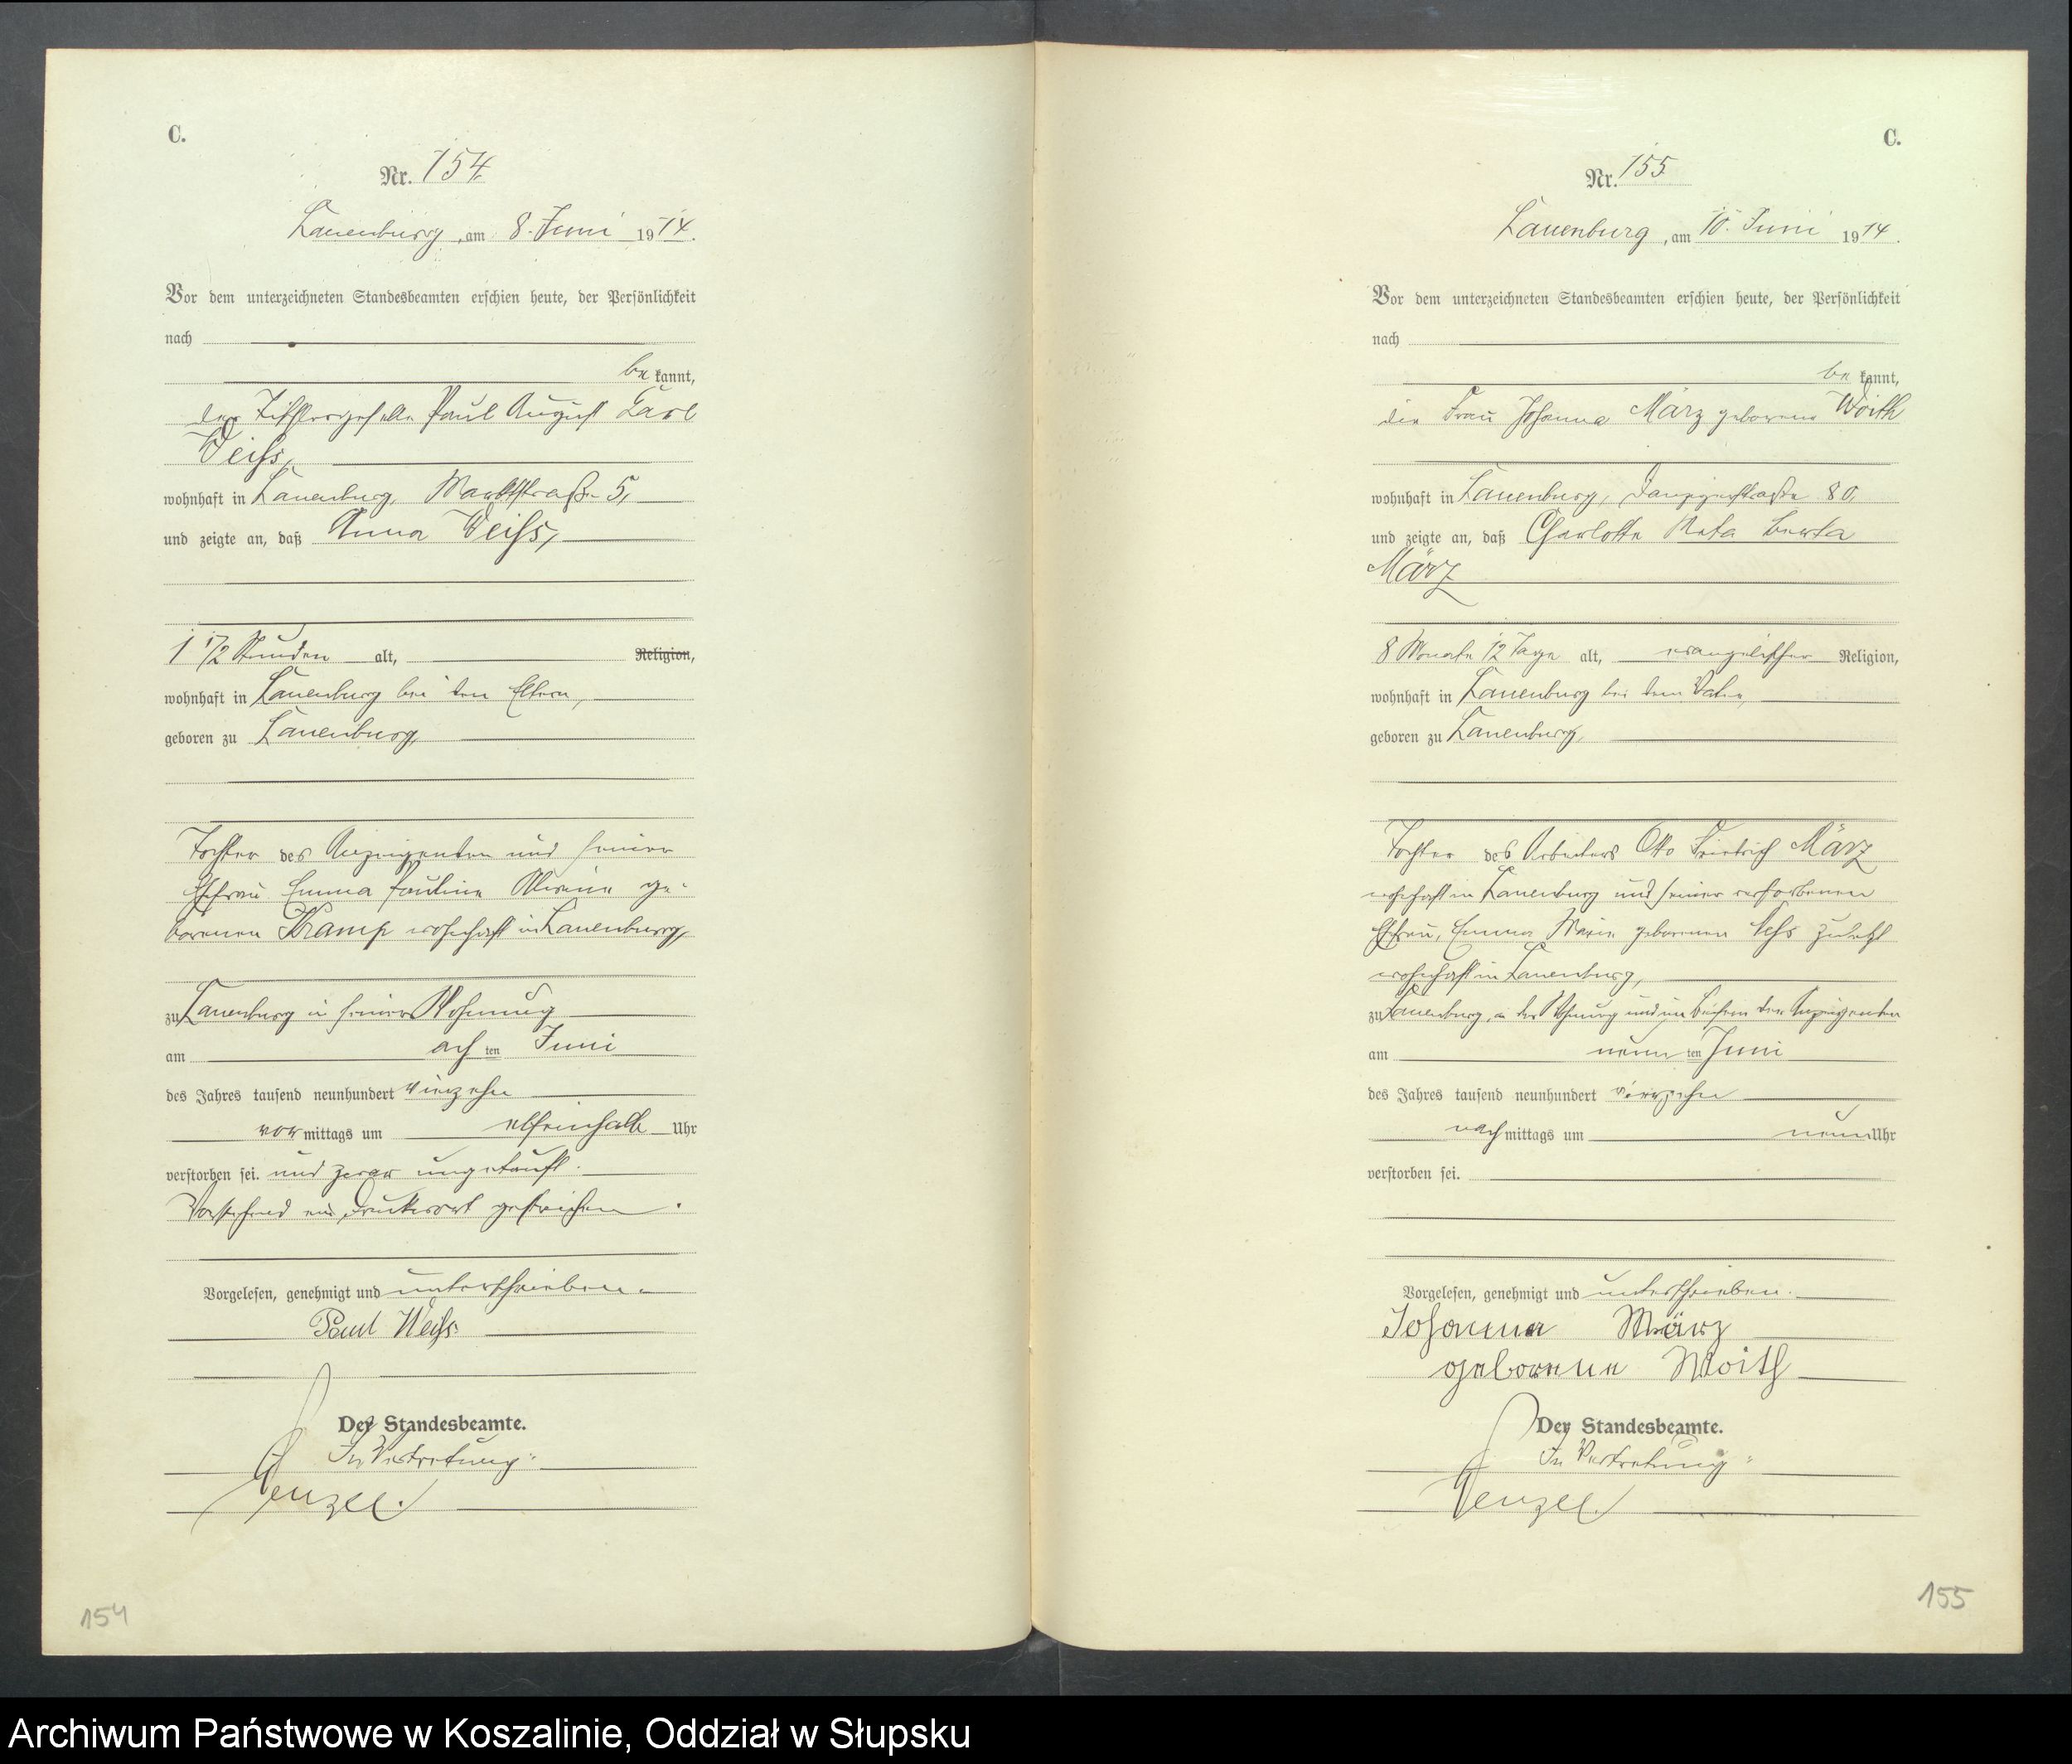 C.
Nr. 154.
Lauenburg, am 8. Juni 1914.
Vor dem unterzeichneten Standesbeamten erschien heute, der Persönlichkeit
nach
be kannt,
der Tischlergeselle Paul August Carl
Weiss,
wohnhaft in Lauenburg, Marktstraße 5,
und zeigte an, daß Anna Weiss,
1 1/2 Stunden alt, Religion,
wohnhaft in Lauenburg bei den Eltern,
geboren zu Lauenburg,
Tochter des Anzeigenden und seiner
Ehefrau Emma Pauline Alwine ge-
borenen Kramp wohnhaft in Lauenburg,
zu Lauenburg in seiner Wohnung
am ach ten Juni
des Jahres tausend neunhundert vierzehn
vor mittags um elfeinhalb Uhr
verstorben sei. und zwar ungetauft.
Vorstehend ein Druckwort gestrichen.
Vorgelesen, genehmigt und unterschrieben.
Paul Weiss.
Der Standesbeamte.
In Vertretung:
154
C.
Nr. 155.
Lauenburg, am 10. Juni 1914.
Vor dem unterzeichneten Standesbeamten erschien heute, der Persönlichkeit
nach
be kannt,
die Frau Johanna März geborene Woith
wohnhaft in Lauenburg, Danzigerstraße 80,
und zeigte an, daß Charlotte Berta
März
8 Monate 12 Tage alt, evangelischer Religion,
wohnhaft in Lauenburg bei dem Vater,
geboren zu Lauenburg,
Tochter des Arbeiters Otto Friedrich März
wohnhaft in Lauenburg und seiner verstorbenen
Ehefrau, Emma Marie geborenen zuletzt
wohnhaft in Lauenburg,
zu Lauenburg, in der Wohnung und im Beisein der Anzeigenden
am neun ten Juni
des Jahres tausend neunhundert vierzehn
nach mittags um neun Uhr
verstorben sei.
Vorgelesen, genehmigt und unterschrieben.
Johanna März
geborene Woith
Der Standesbeamte.
In Vertretung:
155
Archiwum Państwowe w Koszalinie, Oddział w Słupsku